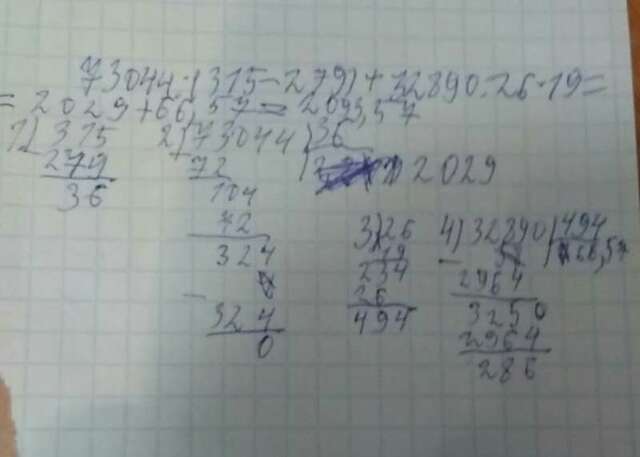 73044:(315-279)+32890:26·19=
=2029+66,57=2095,57
1) 315
279
36
2) 73044 36
72 2029
104
72
324
324
0
3) 26
19
234
26
494
4) 32890 494
2964 66,57
3250
2964
286